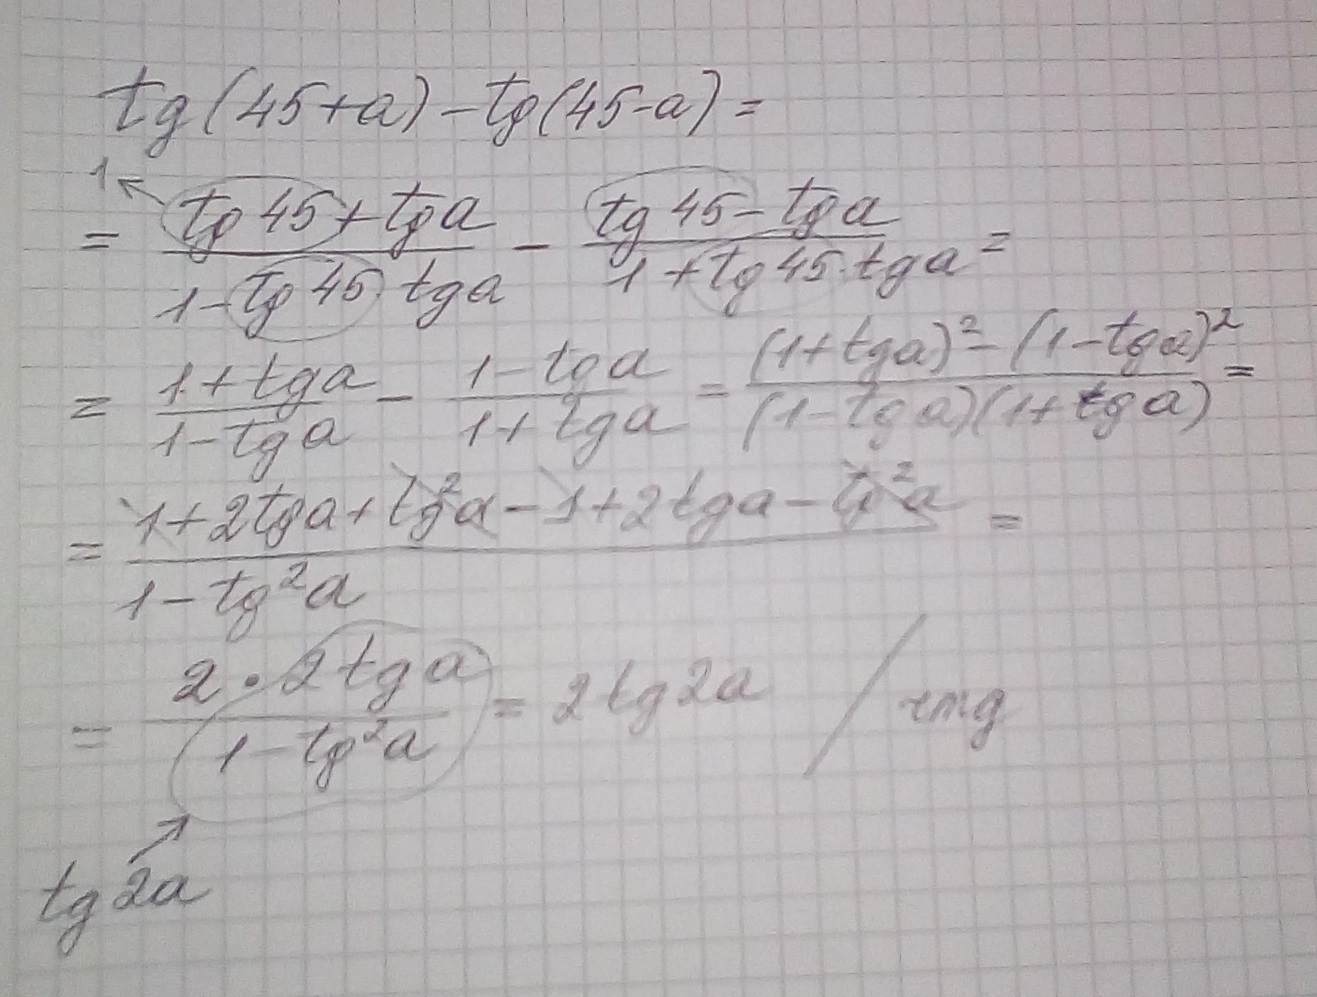 tg(45+a)-tg(45-a)=
1
= (tg 45 + tg a)/(1 - tg 45 tg a) - (tg 45 - tg a)/(1 + tg 45·tg a) =
= (1+tg a)/(1-tg a) - (1-tg a)/(1+tg a) = ((1+tg a)² - (1-tg a)²)/((1-tg a)(1+tg a)) =
= (1+2tg a+tg²a-1+2tg a-tg²a)/(1-tg²a) =
= (2·2tg a)/(1-tg²a) = 2tg2a
tg2a